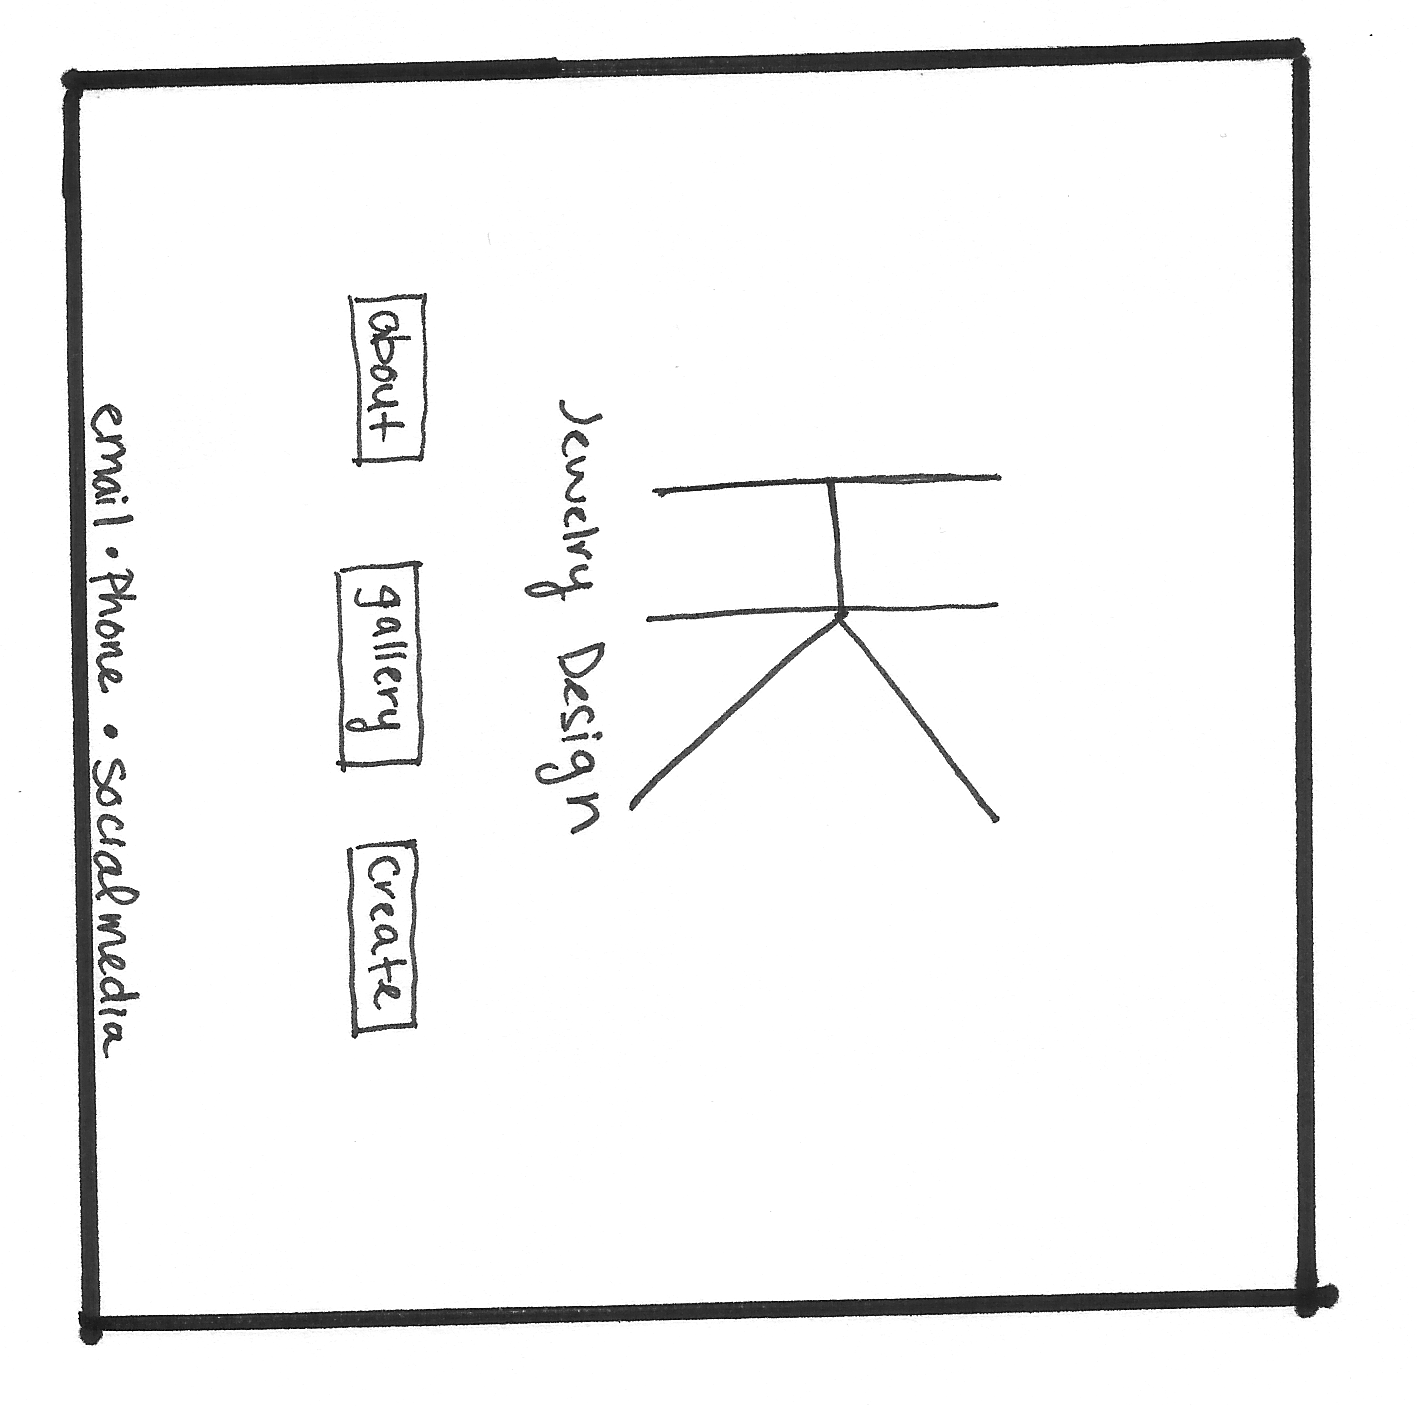 HK
Jewelry Design
about gallery create
email • Phone • social media